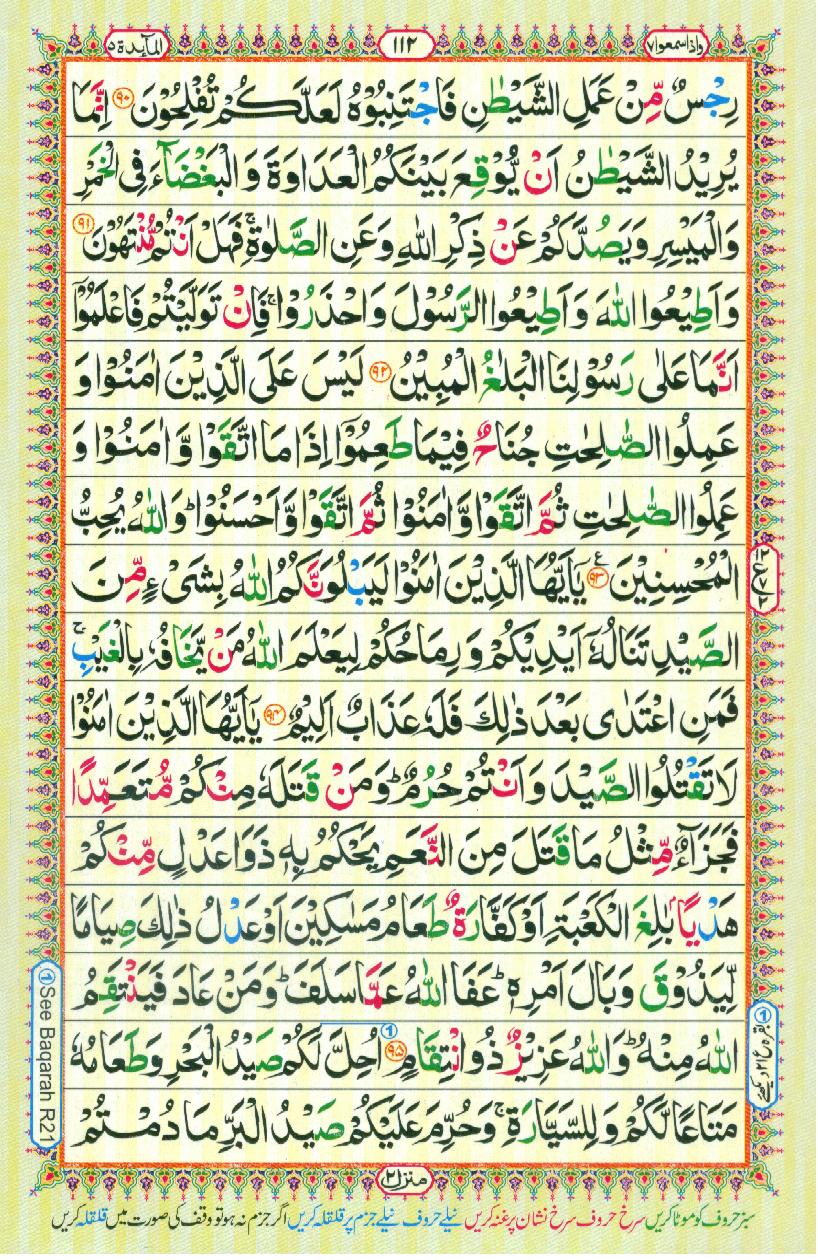 واذاسمعوا٧
١١٢
المآئدة ٥
رِجْسٌ مِّنْ عَمَلِ الشَّيْطٰنِ فَاجْتَنِبُوْهُ لَعَلَّكُمْ تُفْلِحُوْنَ ﴿٩٠﴾ اِنَّمَا
يُرِيْدُ الشَّيْطٰنُ اَنْ يُّوْقِعَ بَيْنَكُمُ الْعَدَاوَةَ وَ الْبَغْضَآءَ فِى الْخَمْرِ
وَالْمَيْسِرِ وَيَصُدَّكُمْ عَنْ ذِكْرِ اللّٰهِ وَعَنِ الصَّلٰوةِ ۚ فَهَلْ اَنْتُمْ مُّنْتَهُوْنَ ﴿٩١﴾
وَاَطِيْعُوا اللّٰهَ وَاَطِيْعُوا الرَّسُوْلَ وَاحْذَرُوْا ۚ فَاِنْ تَوَلَّيْتُمْ فَاعْلَمُوْٓا
اَنَّمَا عَلٰى رَسُوْلِنَا الْبَلٰغُ الْمُبِيْنُ ﴿٩٢﴾ لَيْسَ عَلَى الَّذِيْنَ اٰمَنُوْا وَ
عَمِلُوا الصّٰلِحٰتِ جُنَاحٌ فِيْمَا طَعِمُوْٓا اِذَا مَا اتَّقَوْا وَّ اٰمَنُوْا وَ
عَمِلُوا الصّٰلِحٰتِ ثُمَّ اتَّقَوْا وَّاٰمَنُوْا ثُمَّ اتَّقَوْا وَّاَحْسَنُوْا ؕ وَاللّٰهُ يُحِبُّ
الْمُحْسِنِيْنَ ﴿٩٣﴾ ع يٰٓاَيُّهَا الَّذِيْنَ اٰمَنُوْا لَيَبْلُوَنَّكُمُ اللّٰهُ بِشَىْءٍ مِّنَ
الصَّيْدِ تَنَالُهٗٓ اَيْدِيْكُمْ وَ رِمَاحُكُمْ لِيَعْلَمَ اللّٰهُ مَنْ يَّخَافُهٗ بِالْغَيْبِ ۚ
فَمَنِ اعْتَدٰى بَعْدَ ذٰلِكَ فَلَهٗ عَذَابٌ اَلِيْمٌ ﴿٩٤﴾ يٰٓاَيُّهَا الَّذِيْنَ اٰمَنُوْا
لَا تَقْتُلُوا الصَّيْدَ وَاَنْتُمْ حُرُمٌ ؕ وَمَنْ قَتَلَهٗ مِنْكُمْ مُّتَعَمِّدًا
فَجَزَآءٌ مِّثْلُ مَا قَتَلَ مِنَ النَّعَمِ يَحْكُمُ بِهٖ ذَوَا عَدْلٍ مِّنْكُمْ
هَدْيًاۢ بٰلِغَ الْكَعْبَةِ اَوْ كَفَّارَةٌ طَعَامُ مَسٰكِيْنَ اَوْ عَدْلُ ذٰلِكَ صِيَامًا
لِّيَذُوْقَ وَبَالَ اَمْرِهٖ ؕ عَفَا اللّٰهُ عَمَّا سَلَفَ ؕ وَمَنْ عَادَ فَيَنْتَقِمُ
اللّٰهُ مِنْهُ ؕ وَاللّٰهُ عَزِيْزٌ ذُو انْتِقَامٍ ﴿٩٥﴾ ① اُحِلَّ لَكُمْ صَيْدُ الْبَحْرِ وَطَعَامُهٗ
مَتَاعًا لَّكُمْ وَ لِلسَّيَّارَةِ ۚ وَحُرِّمَ عَلَيْكُمْ صَيْدُ الْبَرِّ مَا دُمْتُمْ
① See Baqarah R21
① بقرہ
منزل ٢
سبز حروف کو موٹا کریں سرخ حروف سرخ نشان پر غنہ کریں نیلے حروف نیلے جزم پر قلقلہ کریں اگر جزم نہ ہو تو وقف کی صورت میں قلقلہ کریں